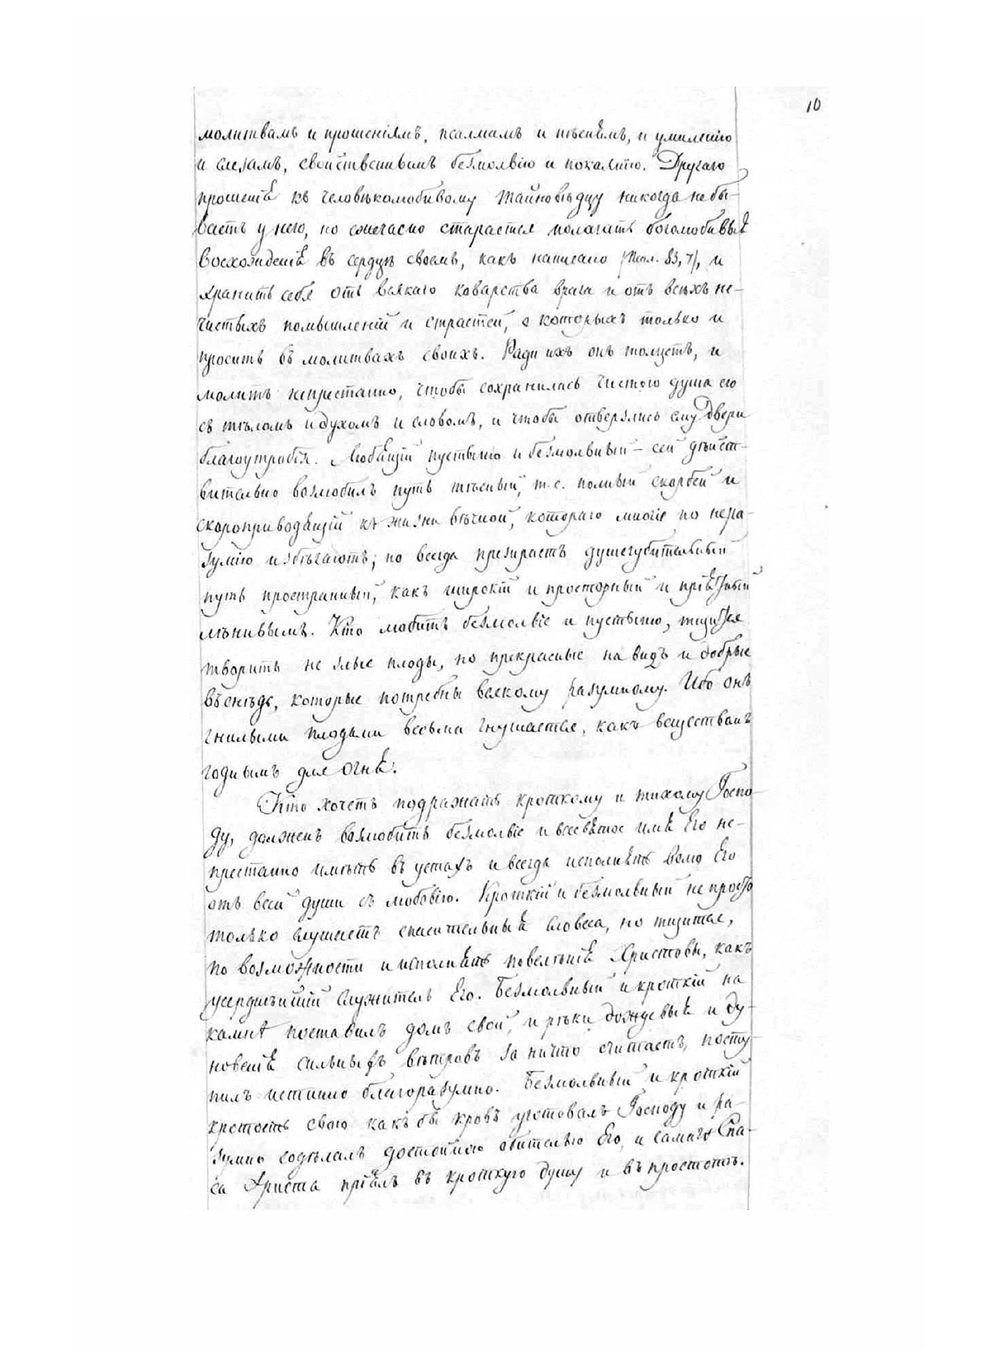 10
молитвамъ и прошеніямъ, псалмамъ и пѣснѣмъ, и умиленію
и слезамъ, свойственнымъ безмолвію и покаянію. Другаго
прошенія къ человѣколюбивому тайновѣдцу никогда не бы-
ваетъ у него, но ежечасно старается полагать боголюбивыя
восхожденія въ сердцѣ своемъ, какъ написано (Псал. 83, 7), и
хранить себя отъ всякаго коварства врага и отъ всѣхъ не-
чистыхъ помышленій и страстей, о которыхъ только и
просить въ молитвахъ своихъ. Ради ихъ онъ толцетъ, и
молитъ непрестанно, чтобы сохранилась чистою душа его
съ тѣломъ и духомъ и словомъ, и чтобы отверзлись ему двери
благоутробія. Любящій пустыню и безмолвный – сей дѣйст-
вительно возлюбилъ путь тѣсный, т.е. полный скорбей и
скороприводящій къ жизни вѣчной, котораго многіе по нера-
зумію избѣгаютъ; но всегда презираетъ душегубительный
путь пространный, какъ широкій и просторный и пріятный
лѣнивымъ. Кто любитъ безмолвіе и пустыню, тщится
творить не злые плоды, но прекрасные на видъ и добрые
въ снѣдь, которые потребны всякому разумному. Ибо онъ
гнилыми плодами весьма гнушается, какъ веществомъ
годнымъ для огня.
Кто хочетъ подражать кроткому и тихому Госпо-
ду, долженъ возлюбить безмолвіе и всесвятое имя Его не-
престанно имѣть въ устахъ и всегда исполнять волю Его
отъ всей души съ любовію. Кроткій и безмолвный не просто
только слушаетъ спасительныя словеса, но тщится,
по возможности и исполнять повелѣнія Христовы, какъ
усерднѣйшій служитель Его. Безмолвный и кроткій на
камнѣ поставилъ домъ свой, и рѣки дождевыя и ду-
новенія сильныхъ вѣтровъ за ничто считаетъ, посту-
пилъ истинно благоразумно. Безмолвный и кроткій
крѣпость свою какъ бы кровъ уготовалъ Господу и ра-
зумно содѣлалъ достойною обителью Его, и самаго Спа-
са Христа пріялъ въ кроткую душу и въ простотѣ.